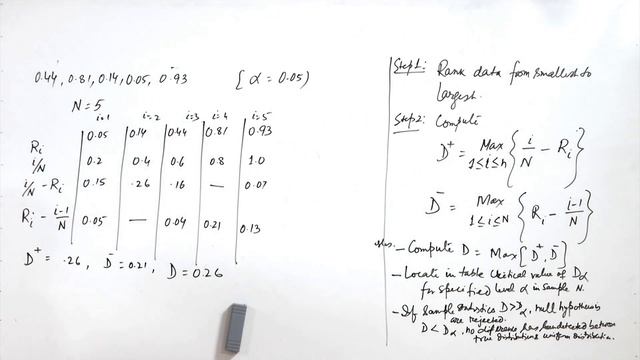 0.44, 0.81, 0.14, 0.05, 0.93 [α = 0.05)
N = 5
i=1 i=2 i=3 i=4 i=5
Ri 0.05 0.14 0.44 0.81 0.93
i/N 0.2 0.4 0.6 0.8 1.0
i/N - Ri 0.15 .26 .16 — 0.07
Ri - i-1/N 0.05 — 0.04 0.21 0.13
D+ = .26, D- = 0.21, D = 0.26
Step1: Rank data from smallest to
largest.
Step2: Compute
D+ = Max 1≤i≤n { i/N - Ri }
D- = Max 1≤i≤N { Ri - i-1/N }
- Compute D = Max [D+, D-]
- Locate in table critical value of Dα
for specified level α in sample N.
- If sample statistics D > Dα, null hypothesis
are rejected.
D < Dα, no difference has been detected between
true distribution & uniform distribution.